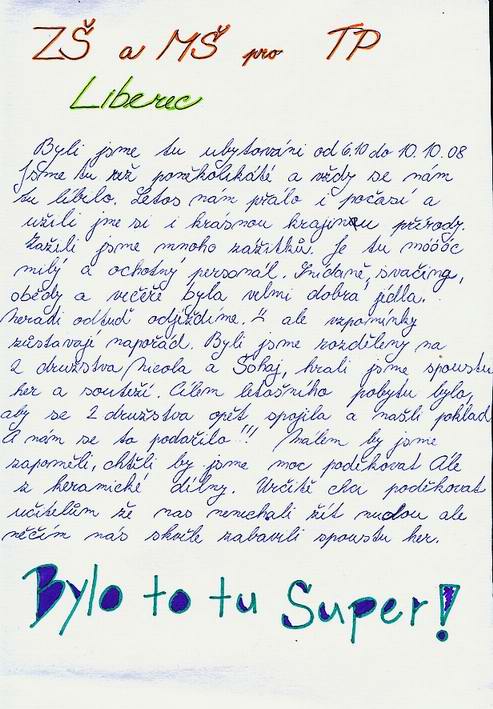 ZŠ a MŠ pro TP
Liberec
Byli jsme tu ubytováni od 6.10 do 10.10.08
Jsme tu už poněkolikáté a vždy se nám
tu líbilo. Letos nám přálo i počasí a
užili jme si i krásnou krajinou přírody.
Zažili jsme mnoho zažitků. Je tu móóóc
milý a ochotný personál. Snídaně, svačiny,
obědy a večeře byla velmi dobrá jídla.
Neradi odtud odjíždíme. ale vzpomínky
zůstavají napořád. Byli jsme rozděleny na
2 družstva Nicola a Sohaj, hrali jsme spoustu
her a soutěží. Cílem letašního pobytu bylo,
aby se 2 družstva opět spojila a našli poklad
A nám se to podařilo!!! Málem by jsme
zapoměli, chtěli by jsme moc poděkovat Ále
z keramické dílny. Určitě chci poděkovat
učitelům že nas nenechali žít nudou ale
něčím nás skvěle zabavili spoustu her.
Bylo to tu Super!